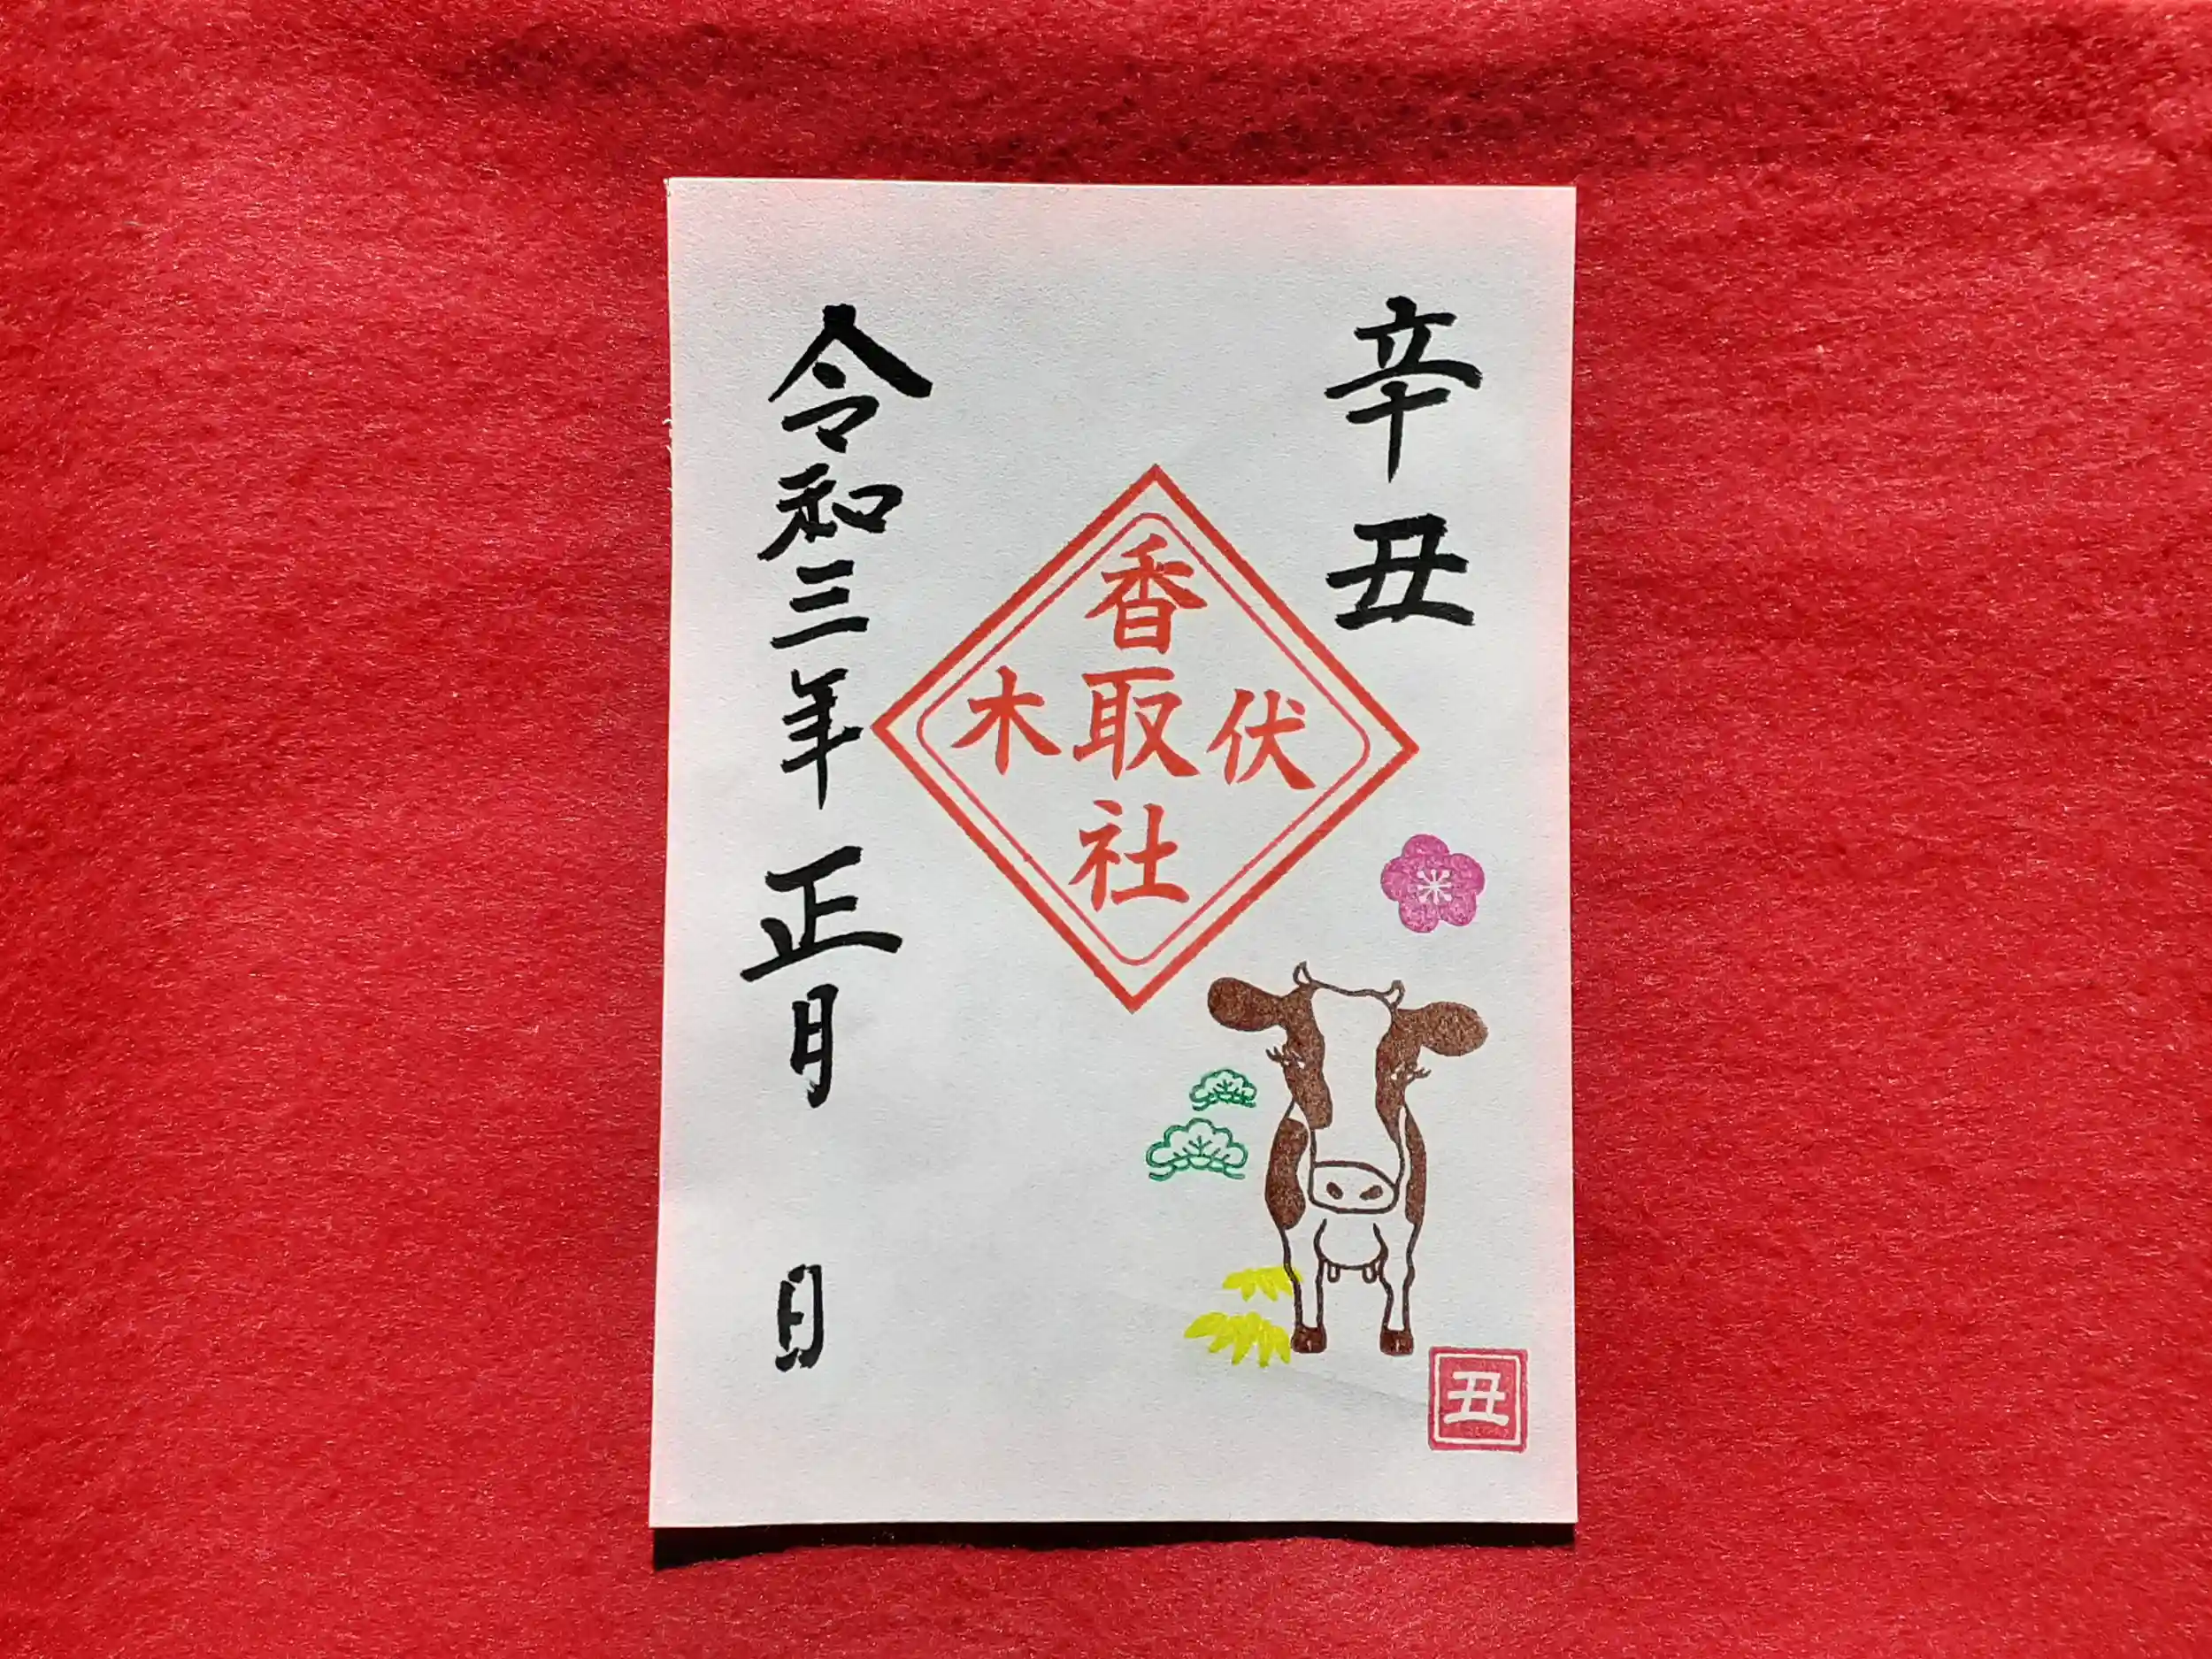 辛丑
伏木
香取社
令和三年 正月 日
丑